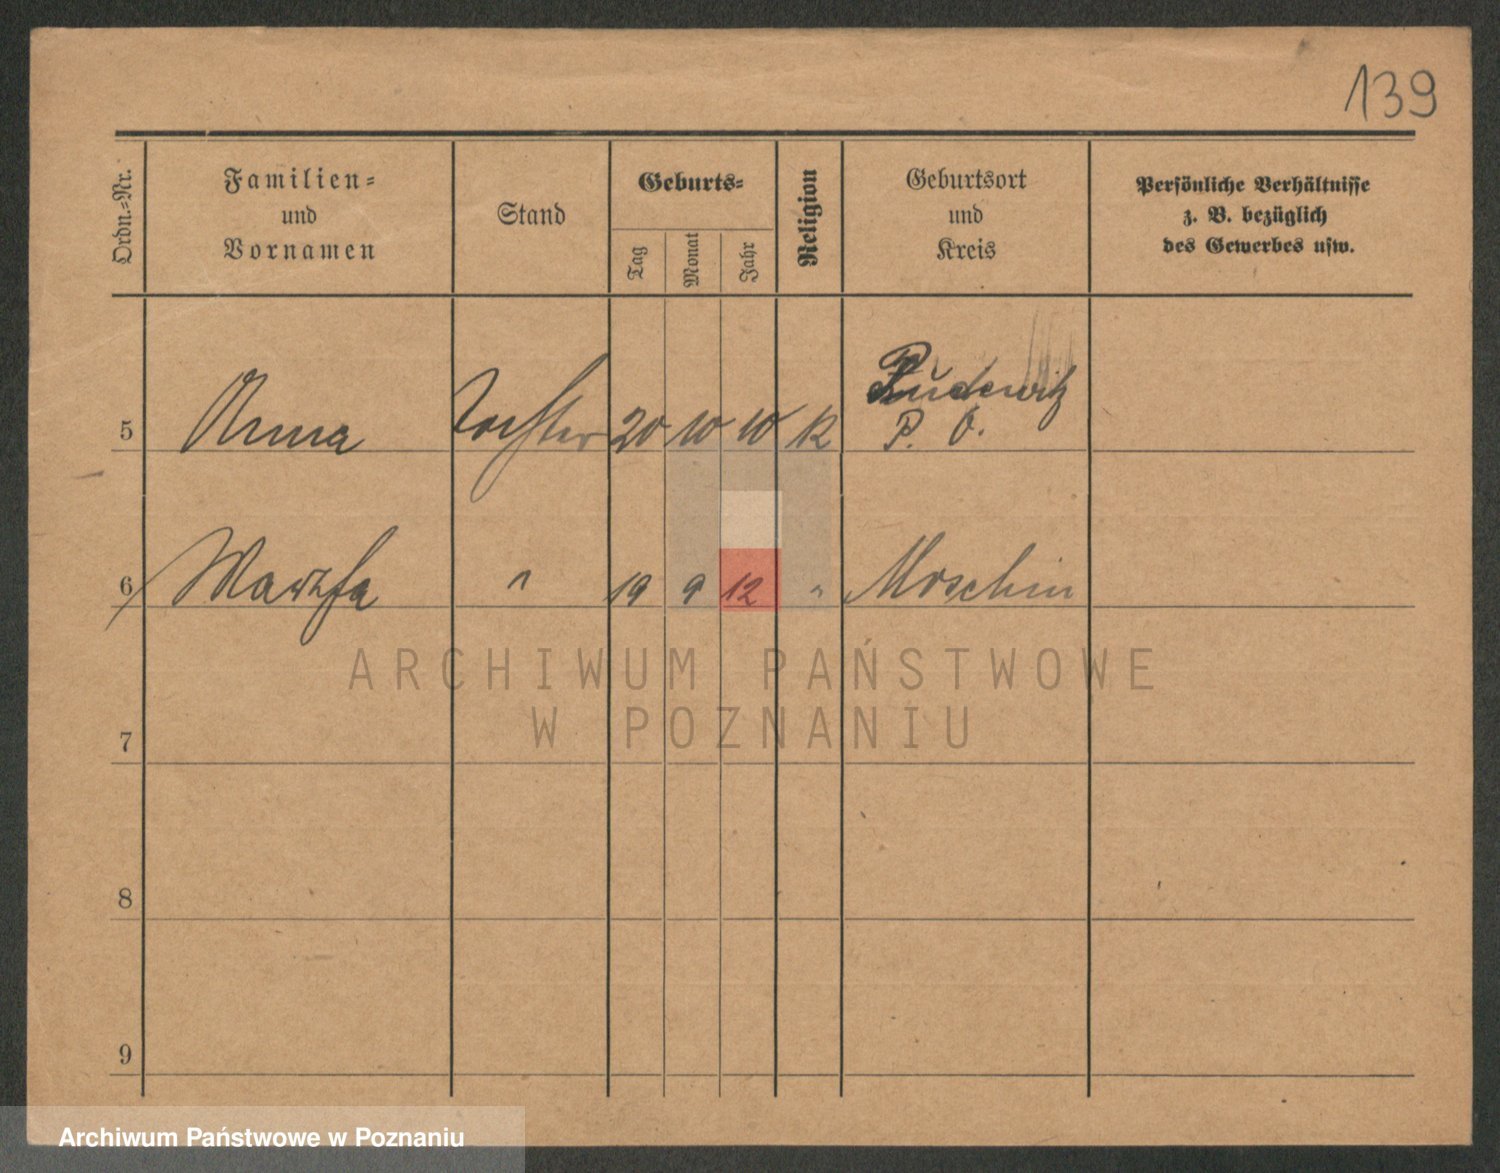 139
Ordn.-Nr.
Familien-
und
Vornamen
Stand
Geburts-
Tag
Monat
Jahr
Religion
Geburtsort
und
Kreis
Persönliche Verhältnisse
z. B. bezüglich
des Gewerbes usw.
Pudewitz
5 Anna Tochter 20 10 10 K P. O.
6 19 9 12 " Moschin
ARCHIWUM PAŃSTWOWE
W POZNANIU
7
8
9
Archiwum Państwowe w Poznaniu